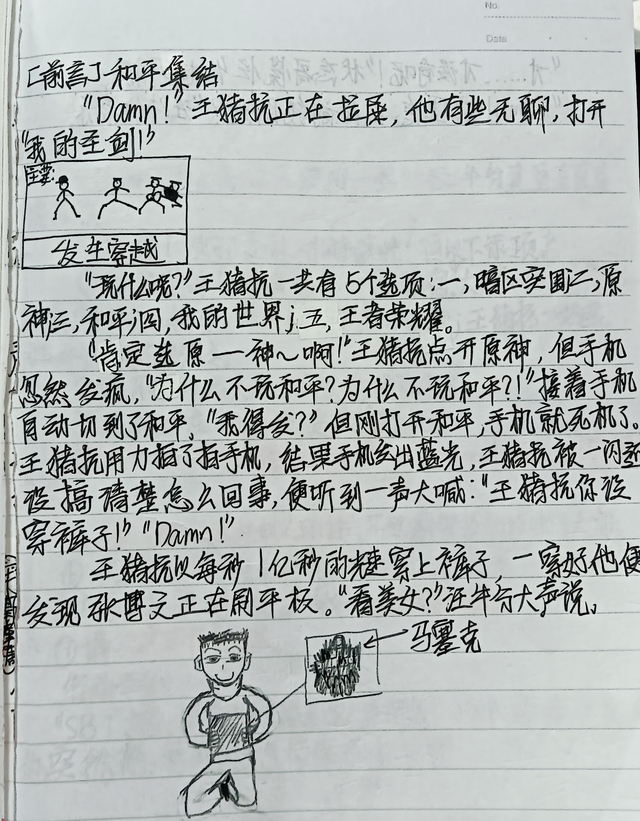 No.
Date
[前言]-和平集结
"Damn!"王猪抗正在拉屎,他有些无聊,打开
"我的圣剑!"
主要:
发生穿越
"玩什么呢?"王猪抗一共有5个选项:一,暗区突围;二,原
神;三,和平;四,我的世界;五,王者荣耀。
"肯定选原一神~啊!"王猪抗点开原神,但手机
忽然发疯,"为什么不玩和平?为什么不玩和平?!"接着手机
自动切到了和平。"我得发?"但刚打开和平,手机就死机了。
王猪抗用力拍了拍手机,结果手机发出蓝光,王猪抗被一闪还
没搞清楚怎么回事,便听到一声大喊:"王猪抗你没
穿裤子!""Damn!"
王猪抗以每秒1亿秒的速穿上裤子,一穿好他便
发现张博文正在刷平板。"看美女?"汪牛大声说。
马塞克